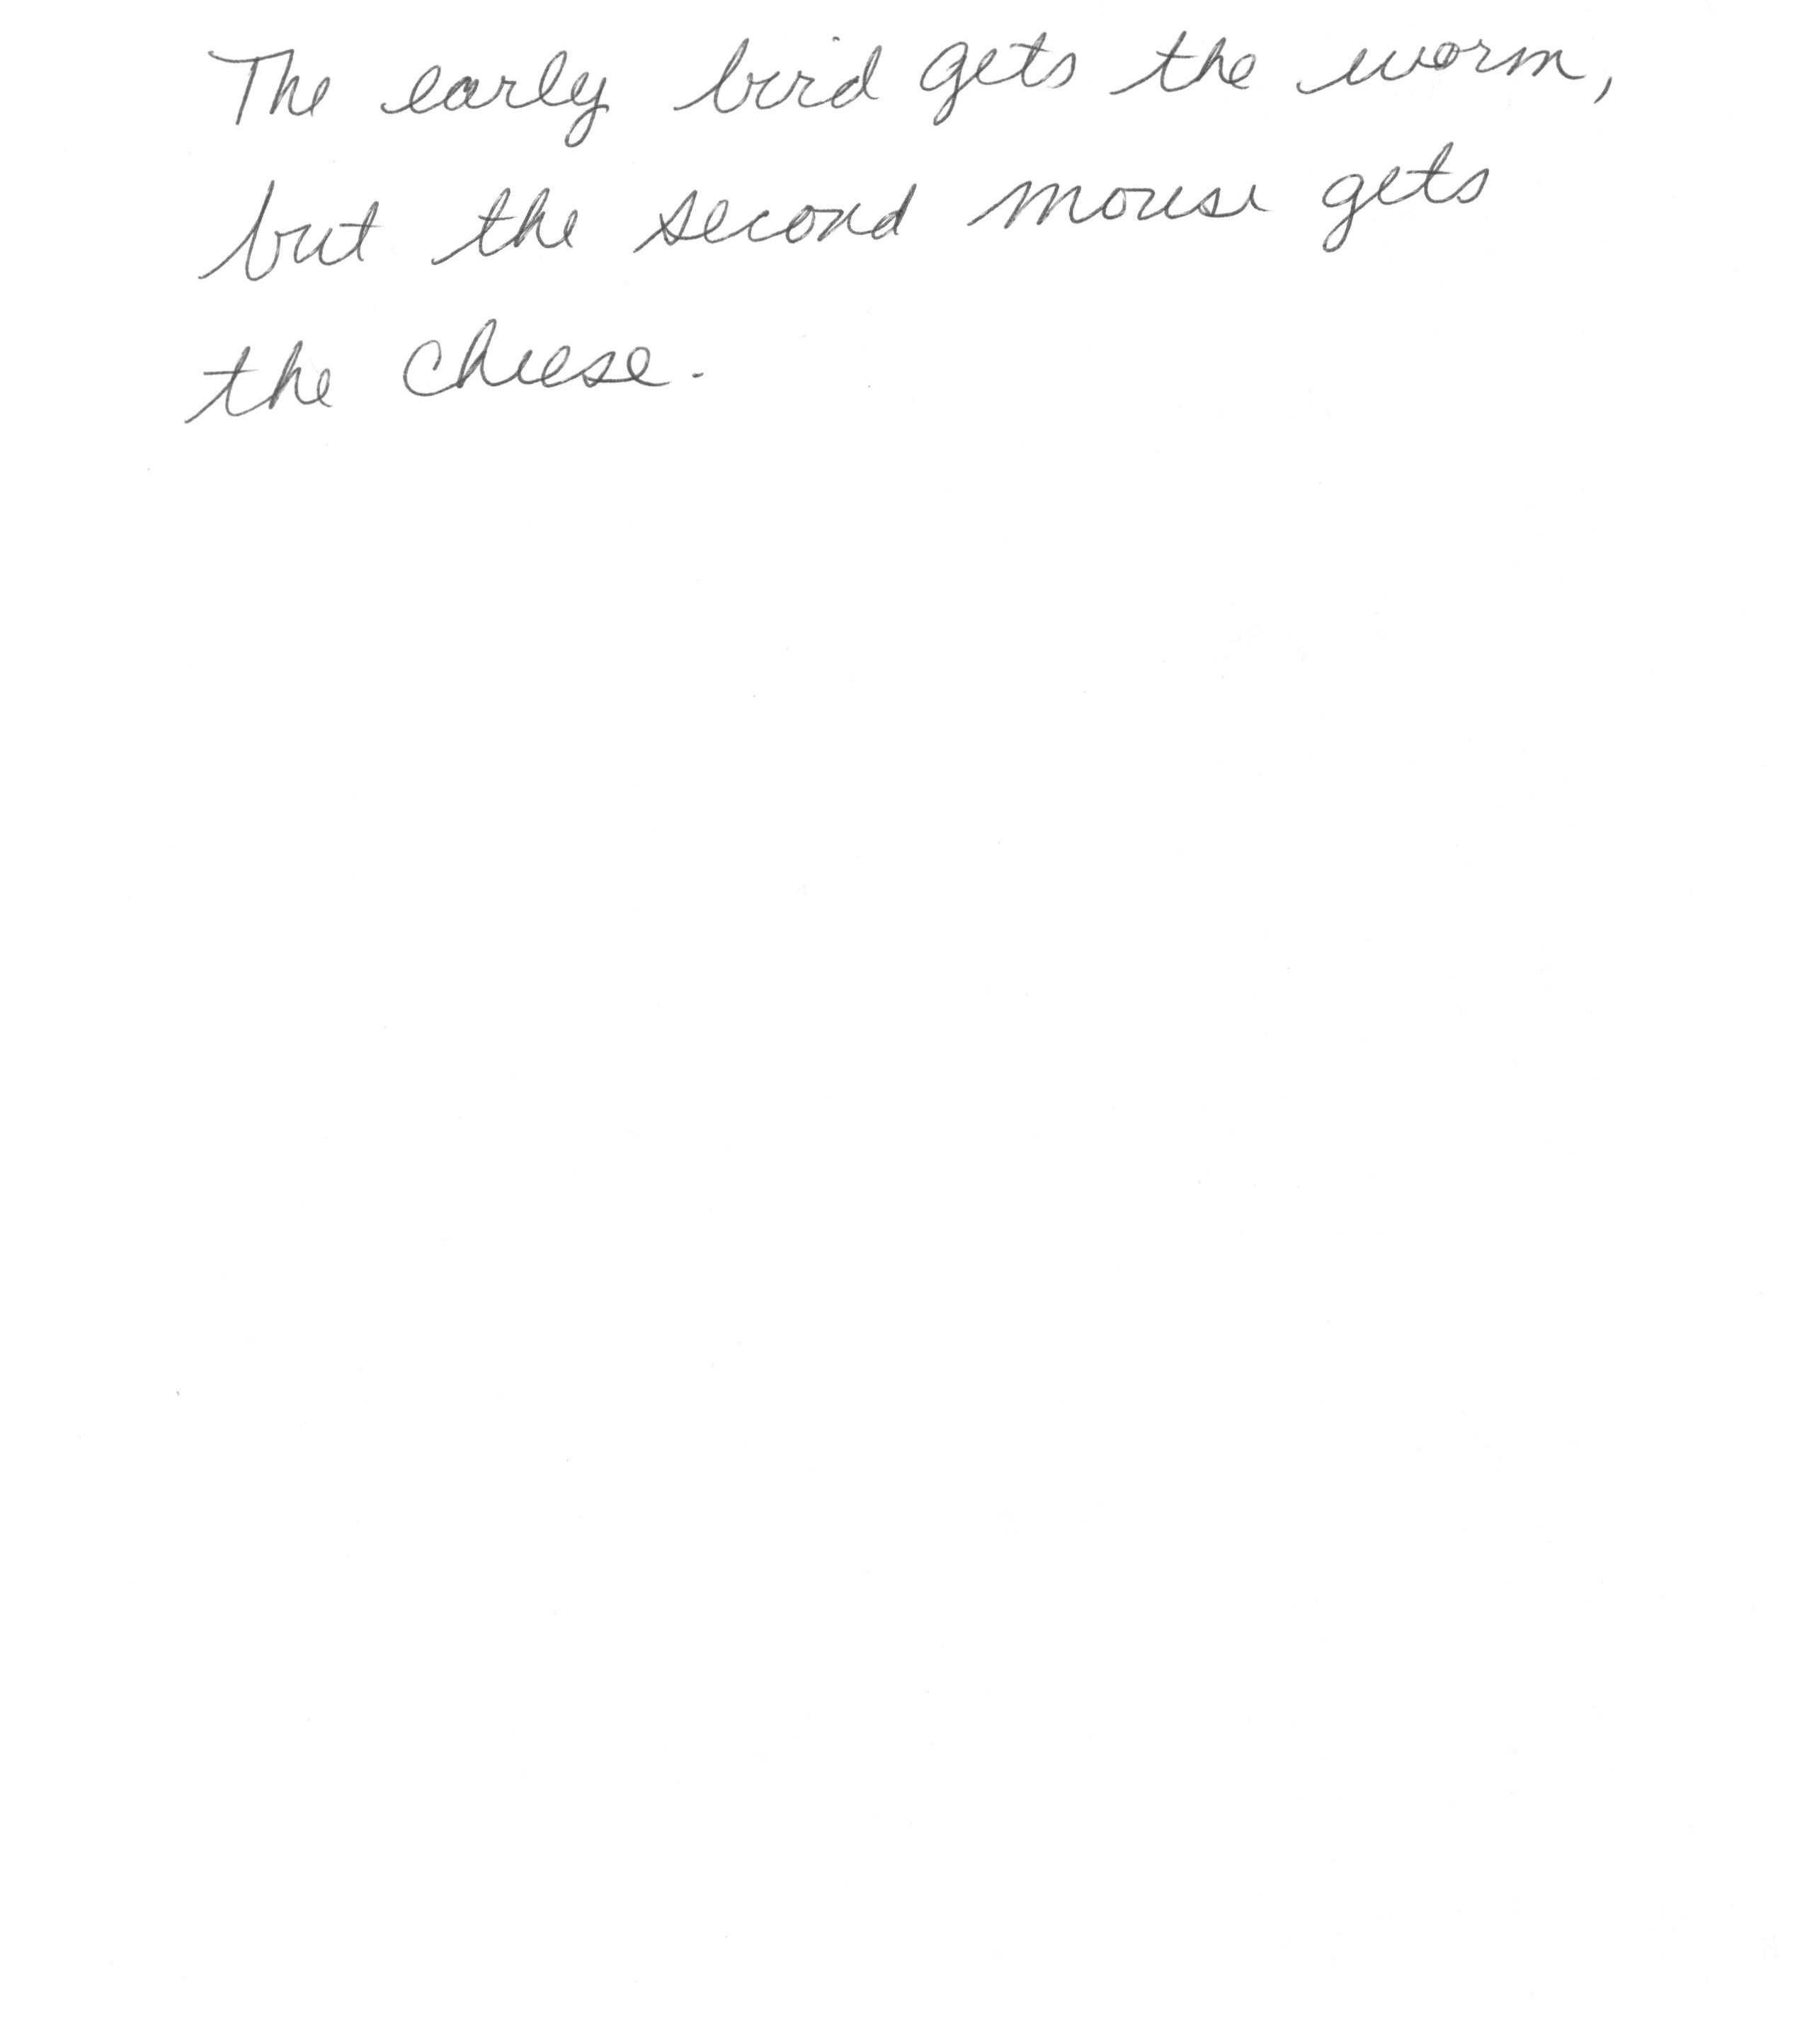 The early bird gets the worm,
but the second mouse gets
the cheese.